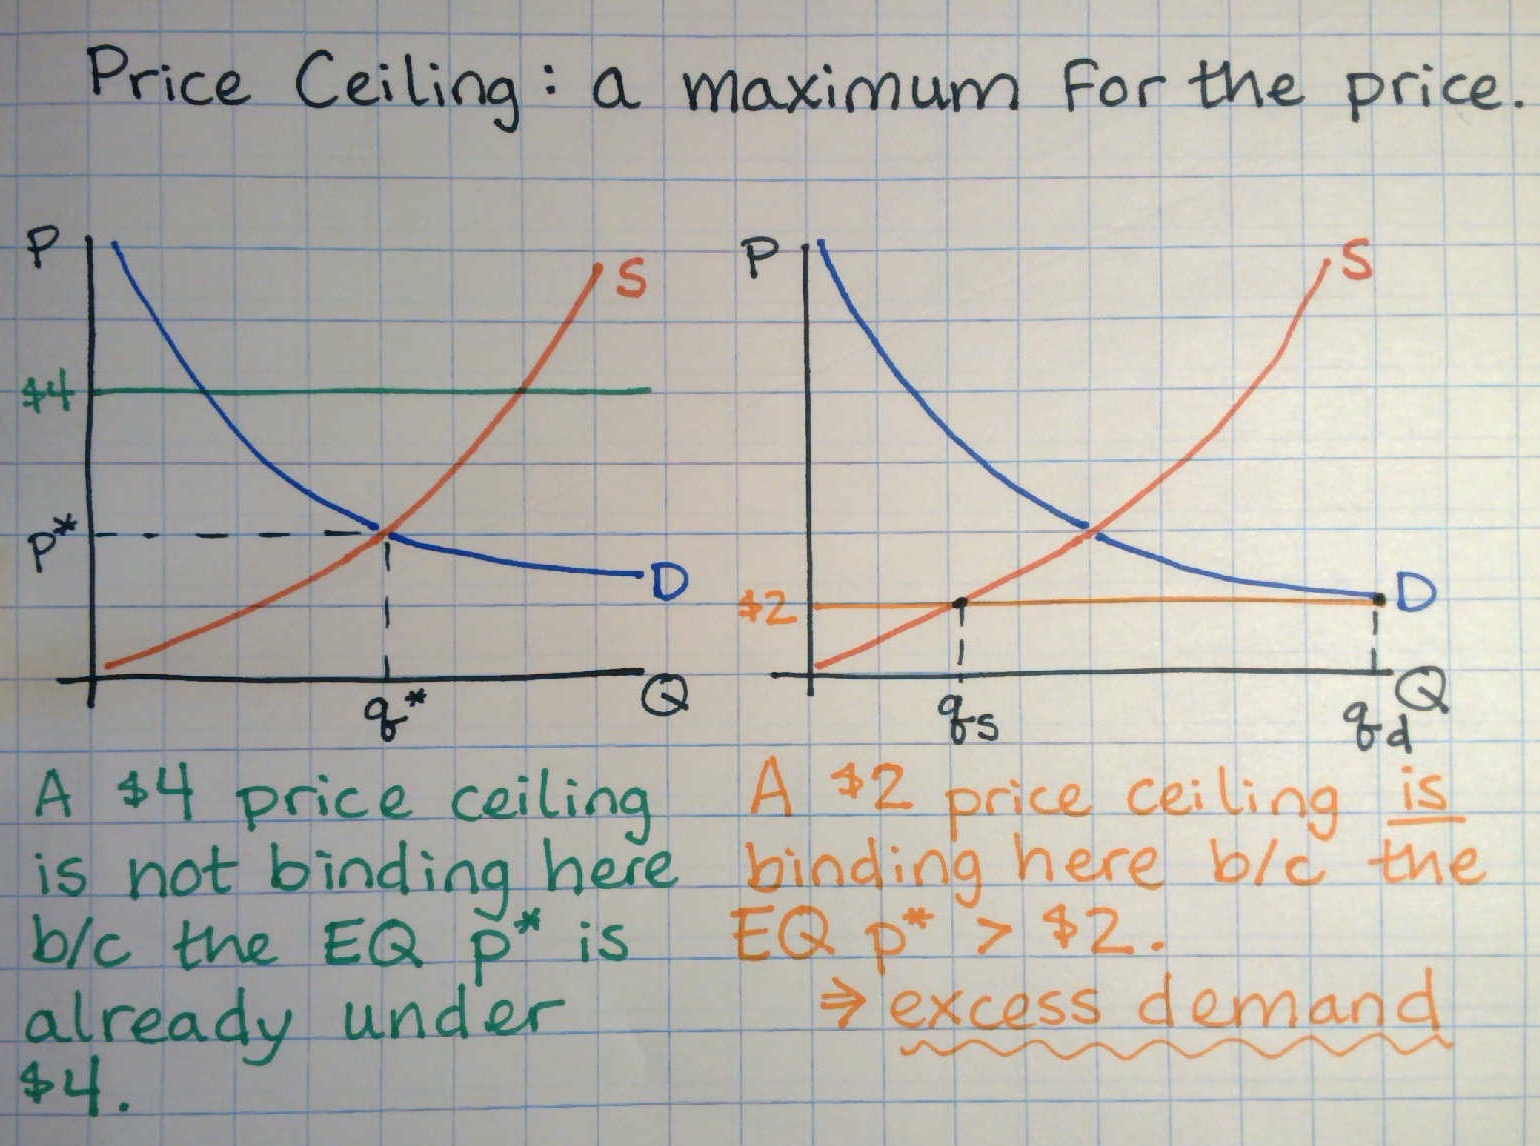 Price Ceiling: a maximum for the price.
P
S
$4
p*
D
q*
Q
P
S
$2
D
qs
qd
Q
A $4 price ceiling
is not binding here
b/c the EQ p* is
already under
$4.
A $2 price ceiling is
binding here b/c the
EQ p* > $2.
⇒ excess demand